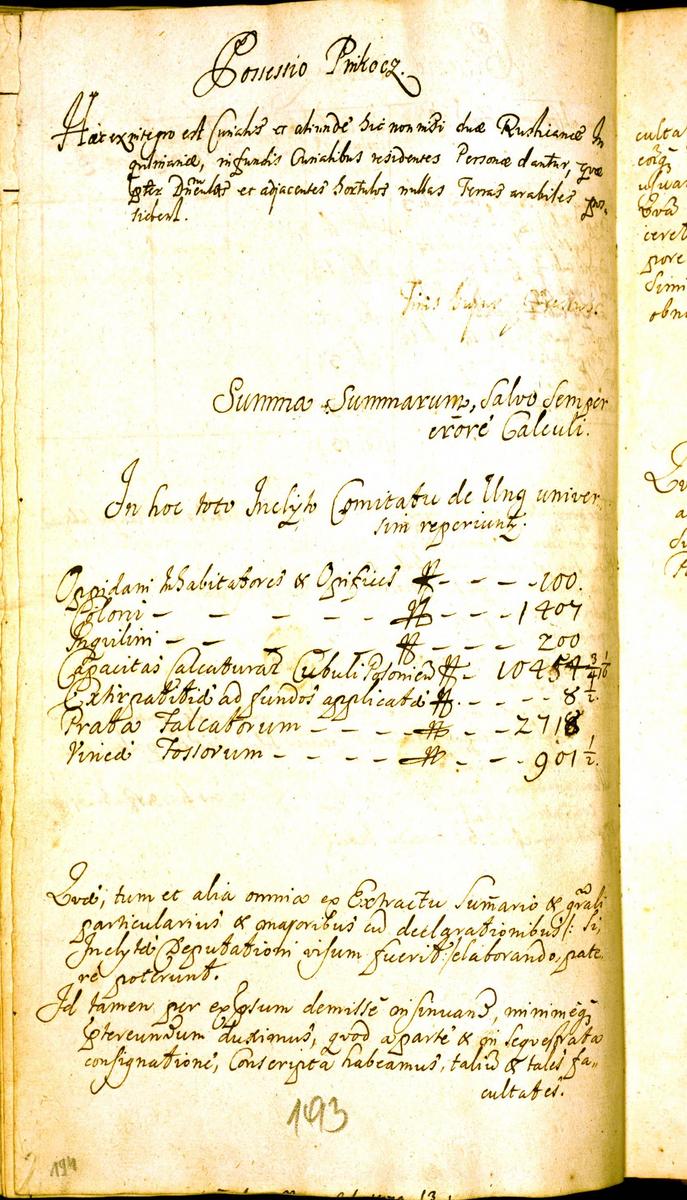 Possessio Pinkocz.
Hæc ex integro est Curialis et aliunde hic non nisi duæ Rusticanæ In
quilinianæ, in fundis Curialibus residentes Personæ dantur, quæ
pter et adjacentes hortulos nullas Terras arabiles pos-
siderl.
Finis hujus
Summa Summarum, Salvo Semper
erōre Calculi.
In hoc toto Inclyto Comitatu de Ung univer
sim reperiunt
Oppidani Inhabitatores & Opifices # - - - 100.
Coloni - - - - - # - - - 1407
Inquilini - - # - - - 200
Capacitas Calcaturar Cubuli Posonien # - 10454 3/4 1/16
Extirpatitiæ ad fundos applicatæ # - - - 8 1/2.
Prata Falcatorum - - - - # - - 2718
Vineæ Fossorum - - - - # - - - 901 1/2.
Quæ, tum et alia omnia ex Extractu Sum̄ario & gr̄ali
particularius & majoribus cū declarationibus /: Si,
Inclytæ Deputationi visum fuerit :/ elaborando, pate
re poterunt.
Id tamen per expssum demissè insinuand, minimeq
ptereundum duximus, quod a parte & in Sequestrata
consignatione, Conscripta habeamus, taliū & tales fa-
cultates.
193
194
culta
usuar
ceret
pore
Simi
obn